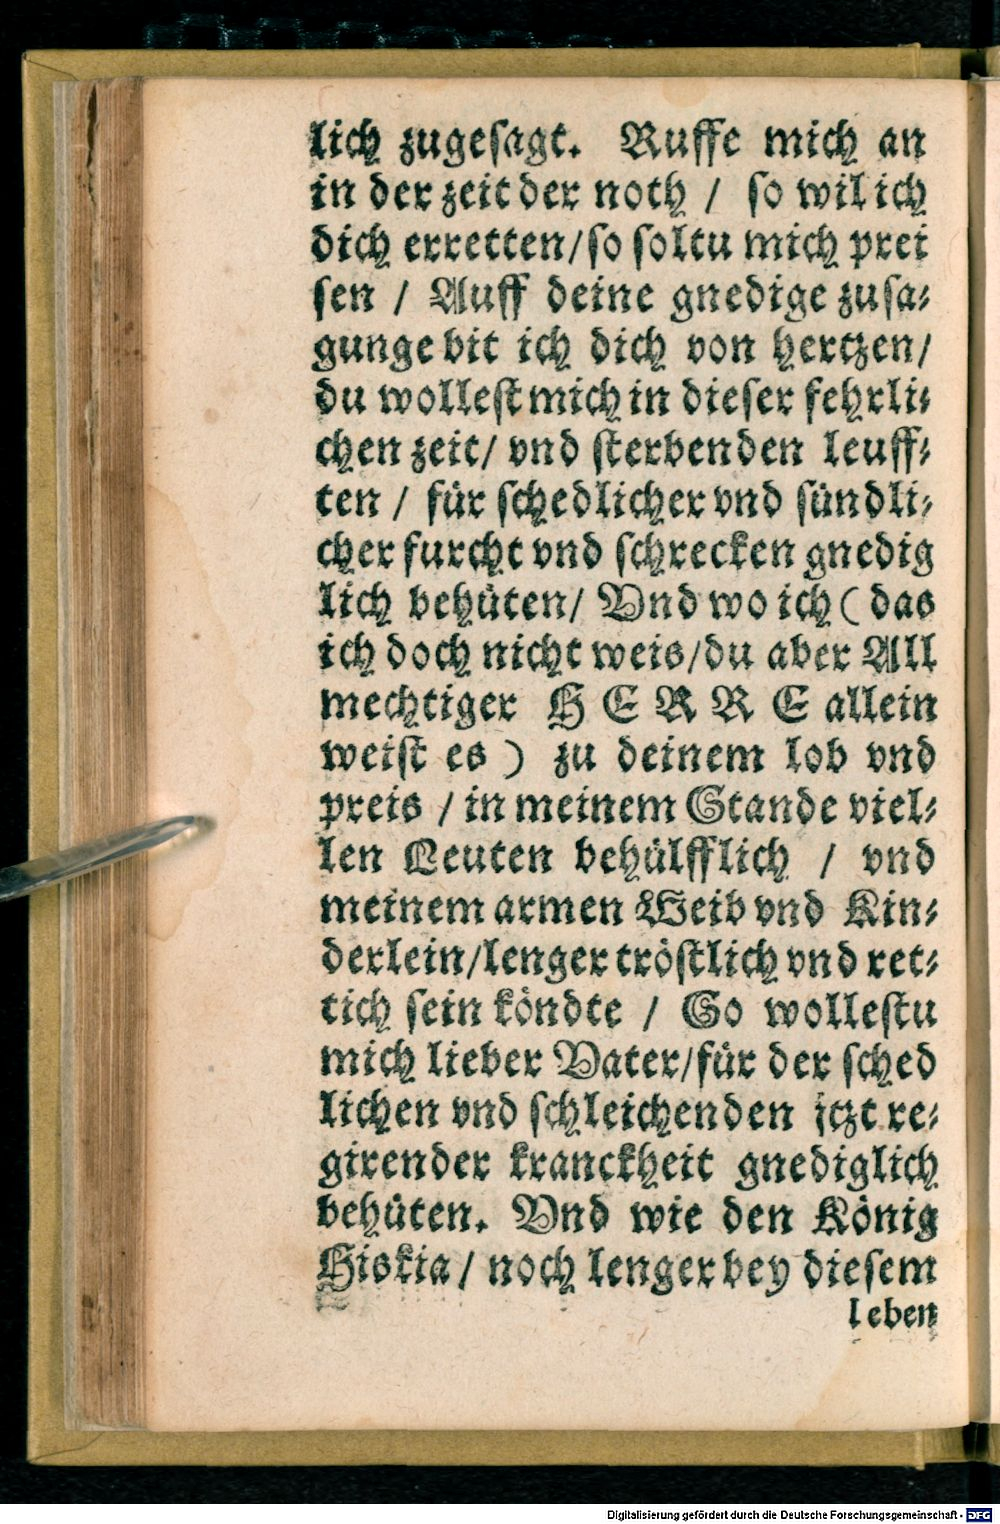 lich zugesagt. Ruffe mich an
in der zeit der noth / so wil ich
dich erretten/so soltu mich prei
sen / Auff deine gnedige zusa⸗
gunge bit ich dich von hertzen/
du wollest mich in dieser fehrli⸗
chen zeit/ vnd sterbenden leuff⸗
ten / für schedlicher vnd sündli⸗
cher furcht vnd schrecken gnedig
lich behüten/ Vnd wo ich ( das
ich doch nicht weis/du aber All
mechtiger HERRE allein
weist es ) zu deinem lob vnd
preis / in meinem Stande viel⸗
len Leuten behülfflich / vnd
meinem armen Weib vnd Kin⸗
derlein/lenger tröstlich vnd ret⸗
tich sein köndte / So wollestu
mich lieber Vater/für der sched
lichen vnd schleichenden jtzt re⸗
girender kranckheit gnediglich
behüten. Vnd wie den König
Hiskia / noch lenger bey diesem
leben
Digitalisierung gefördert durch die Deutsche Forschungsgemeinschaft - DFG